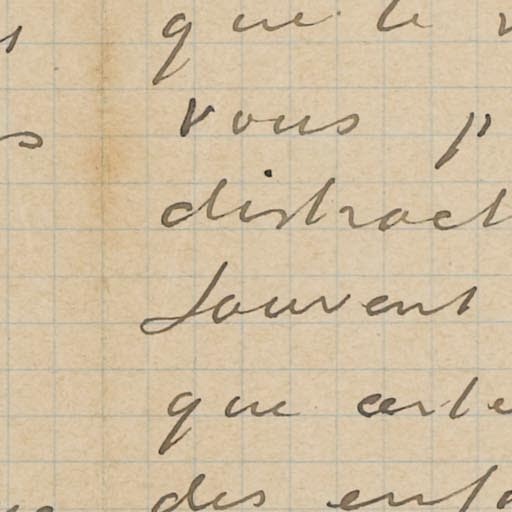 que le
vous
distract
souvent
que certe
des enfa